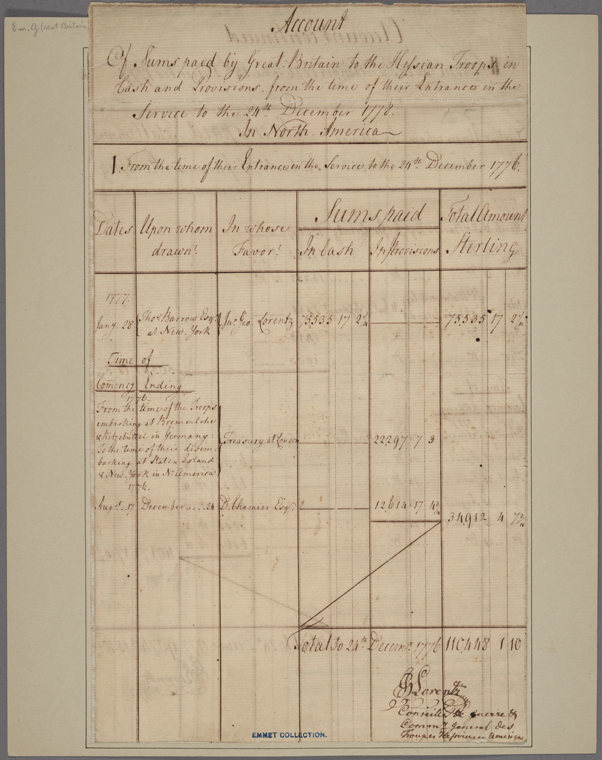 Em. 9 Great Britain
Account
Of Sums paid by Great Britain to the Hessian Troops in
Cash and Provisions from the time of their Entrance in the
Service to the 24th December 1778.
In North America
1 From the time of their Entrance in the Service to the 24th December 1776.
Dates Upon whom drawn. In whose Favor. Sums paid Total Amount Sterling
In Cash In Provisions
1777.
Jany. 28 Thos. Barrow Esqr. at New York Jno. Geo. Lorentz 75,535 17 2 75,535 17 2
Time of
Comencg. Ending
1776.
From the time of the Troops
embarking at Bremerlehe
& Ritzebuttel in Germany
To the time of their disem-
barking at Staten Island
& New York in N. America
1776.
Treasury at 22,297 7 3
Augt. 17 December 24 D. Chamier Esqr. 12,614 17 4
34,912 4 7
Total to 24th Decemr. 1776 110,448 1 10
Lorentz
Conseiller de guerre &
Comm. general des
Troupes Hessoises en Amerique
EMMET COLLECTION.